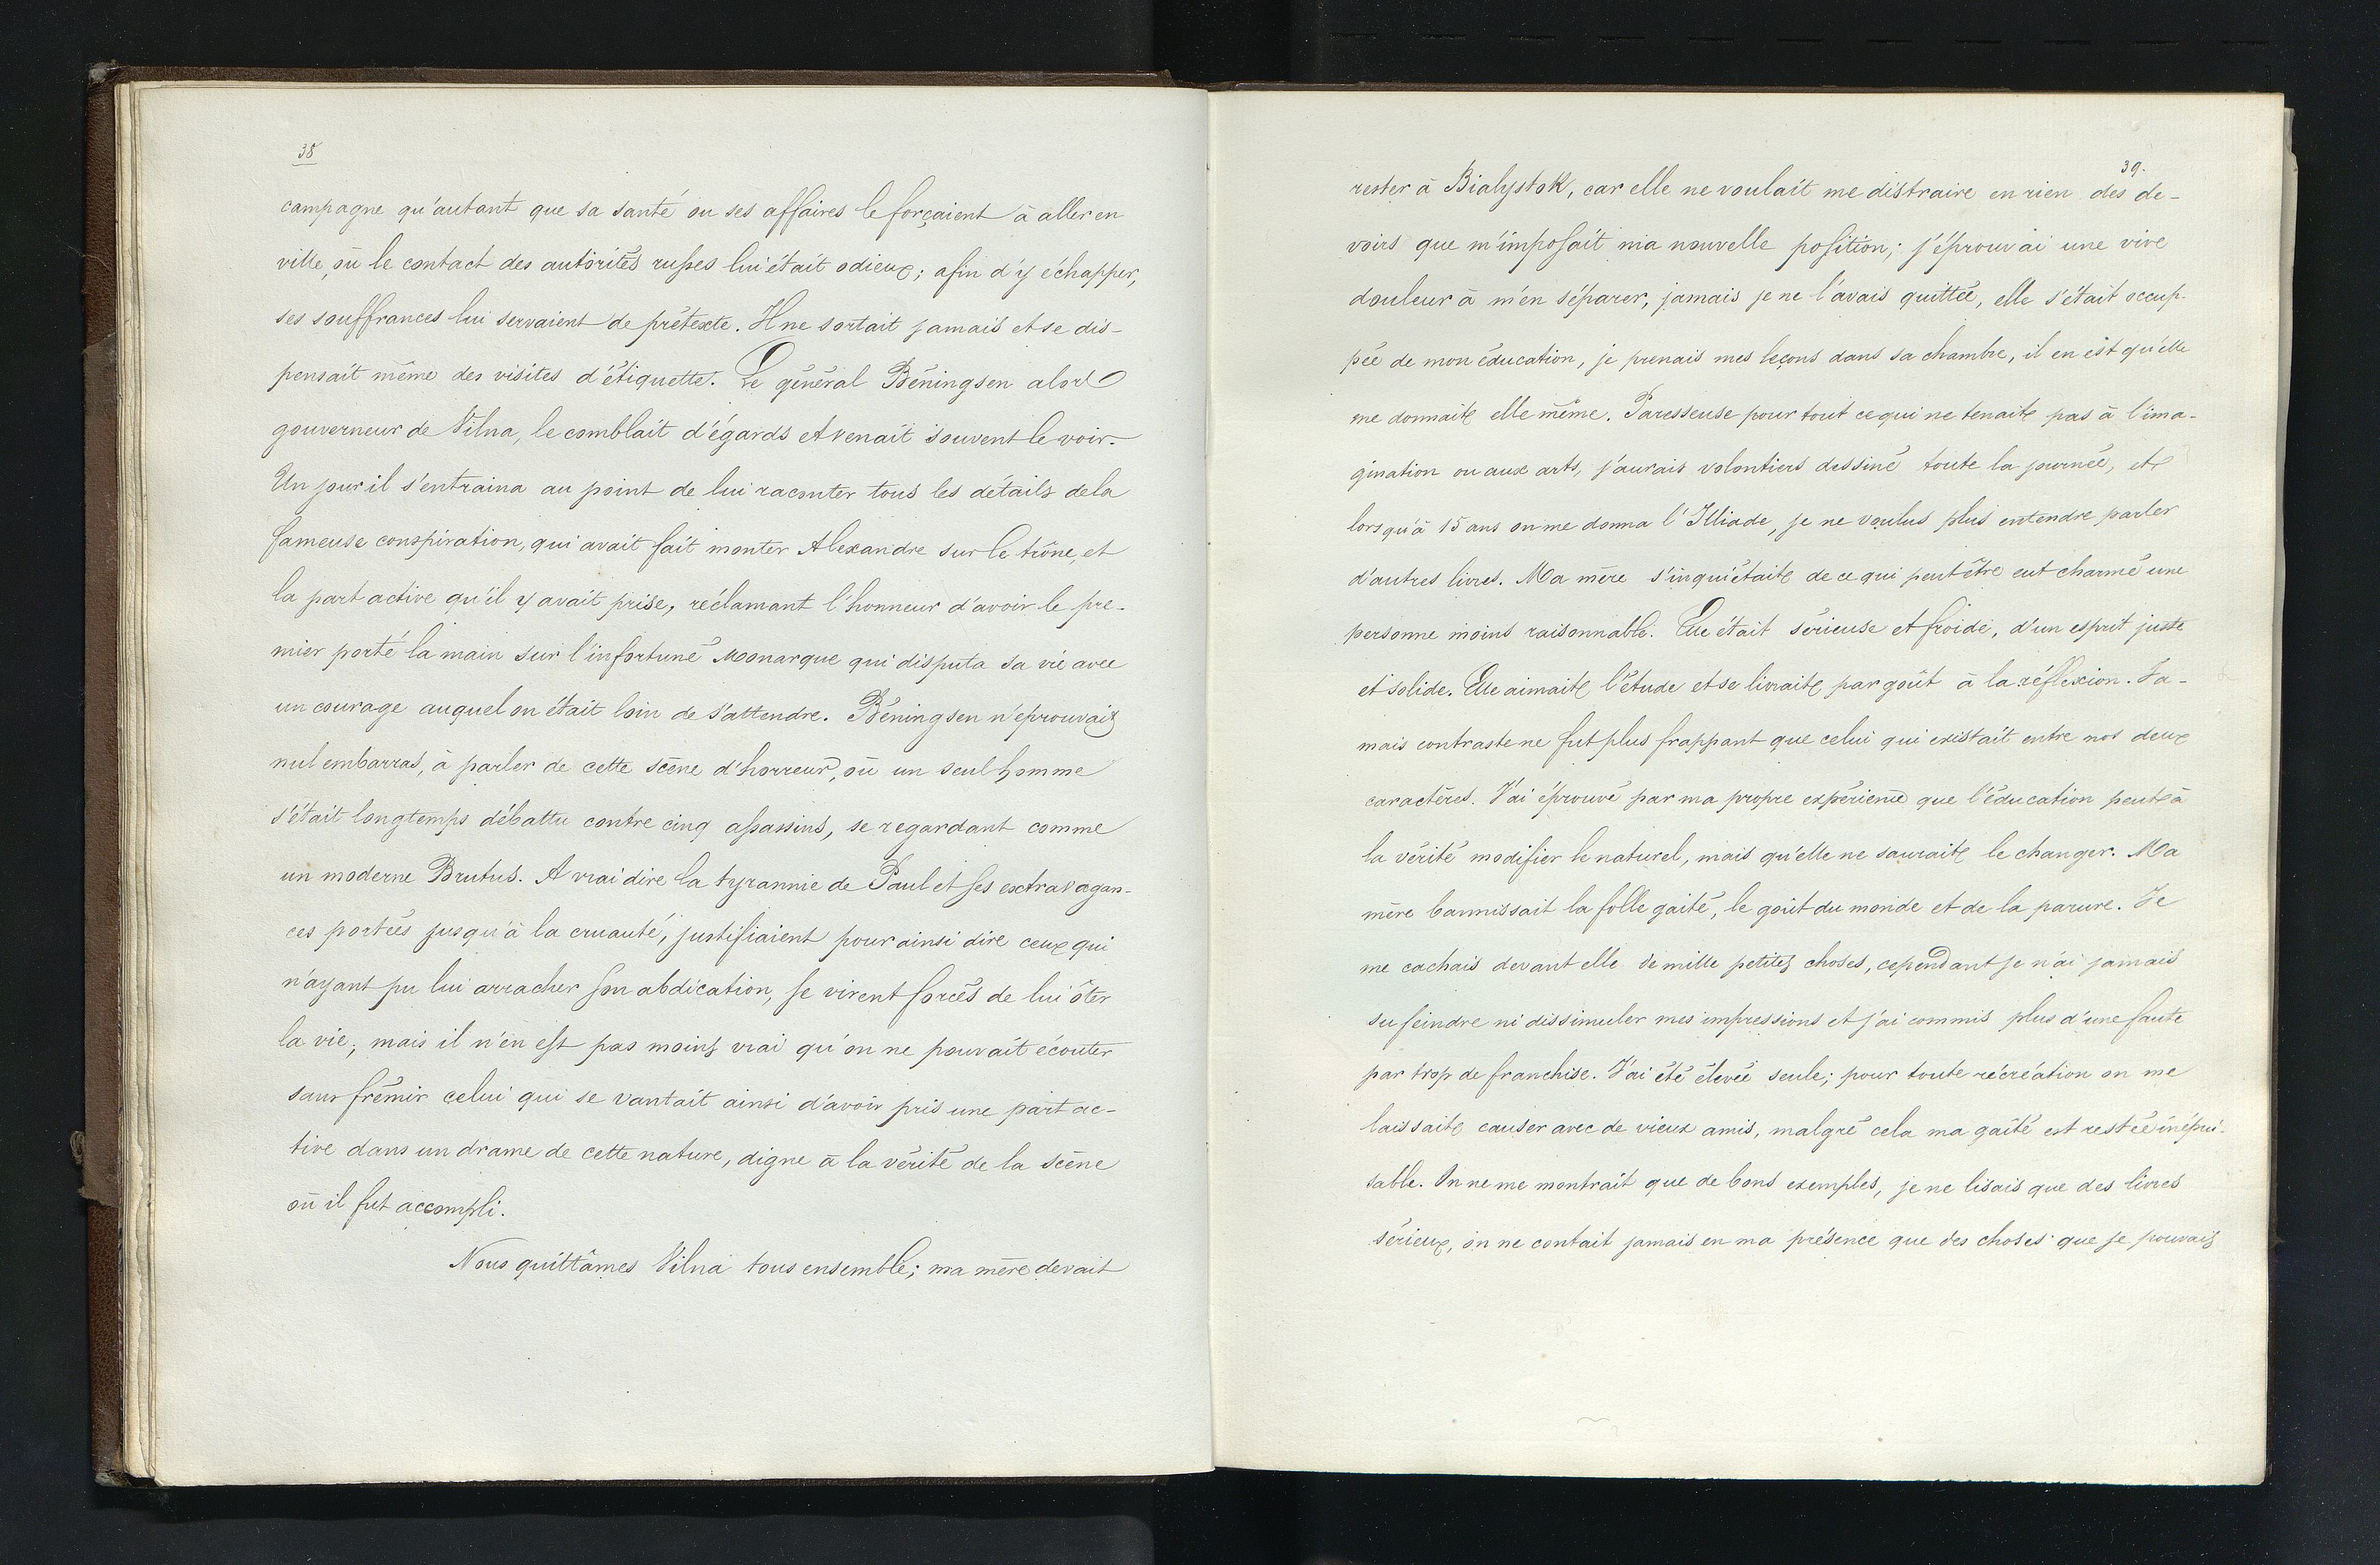 38
campagne qu'autant que sa santé ou ses affaires le forçaient à aller en
ville, où le contact des autorités russes lui était odieux; afin d'y échapper,
ses souffrances lui servaient de prétexte. Il ne sortait jamais et se dis-
pensait même des visites d'étiquette. Le général Béningsen alors
gouverneur de Vilna, le comblait d'égards et venait souvent le voir.
Un jour il s'entraina au point de lui raconter tous les détails de la
fameuse conspiration, qui avait fait monter Alexandre sur le trône, et
la part active qu'il y avait prise, réclamant l'honneur d'avoir le pre-
mier porté la main sur l'infortuné Monarque qui disputa sa vie avec
un courage auquel on était loin de s'attendre. Béningsen n'éprouvait
nul embarras, à parler de cette scène d'horreur, où un seul homme
s'était longtemps débattu contre cinq assassins, se regardant comme
un moderne Brutus. A vrai dire la tyrannie de Paul et ses extravagan-
ces portées jusqu'à la cruauté, justifiaient pour ainsi dire ceux qui
n'ayant pu lui arracher son abdication, se virent forcés de lui ôter
la vie; mais il n'en est pas moins vrai qu'on ne pouvait écouter
sans frémir celui qui se vantait ainsi d'avoir pris une part ac-
tive dans un drame de cette nature, digne à la vérité de la scène
où il fut accompli.
Nous quittâmes Vilna tous ensemble; ma mère devait
39.
rester à Bialystok, car elle ne voulait me distraire en rien des de-
voirs que m'imposait ma nouvelle position; j'éprouvai une vive
douleur à m'en séparer, jamais je ne l'avais quittée, elle s'était occup-
pée de mon éducation, je prenais mes leçons dans sa chambre, il en est qu'elle
me donnait elle même. Paresseuse pour tout ce qui ne tenait pas à l'ima-
gination ou aux arts, j'aurais volontiers dessiné toute la journée, et
lorsqu'à 15 ans on me donna l'Illiade, je ne voulus plus entendre parler
d'autres livres. Ma mère s'inquiétait de ce qui peut être eut charmé une
personne moins raisonnable. Elle était sérieuse et froide, d'un esprit juste
et solide. Elle aimait l'étude et se livrait par goût à la réflexion. Ja-
mais contraste ne fut plus frappant que celui qui existait entre nos deux
caractères. J'ai éprouvé par ma propre expérience que l'éducation peut à
la vérité modifier le naturel, mais qu'elle ne saurait le changer. Ma
mère bannissait la folle gaité, le goût du monde et de la parure. Je
me cachais devant elle de mille petites choses, cependant je n'ai jamais
su feindre ni dissimuler mes impressions et j'ai commis plus d'une faute
par trop de franchise. J'ai été élevée seule; pour toute récréation on me
laissait causer avec de vieux amis, malgré cela ma gaîté est restée inépui-
sable. On ne me montrait que de bons exemples, je ne lisais que des livres
sérieux, on ne contait jamais en ma présence que des choses que je pouvais